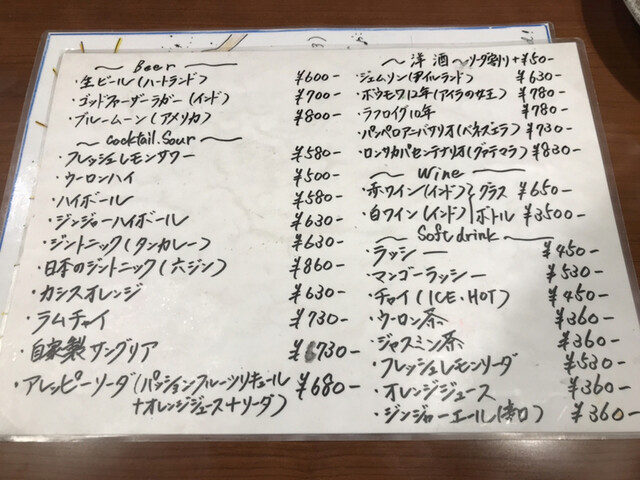 Beer
・生ビール(ハートランド) ¥600-
・ゴッドファーザーラガー(インド) ¥700-
・ブルームーン(アメリカ) ¥800-
Cocktail.Sour
・フレッシュレモンサワー ¥580-
・ウーロンハイ ¥500-
・ハイボール ¥580-
・ジンジャーハイボール ¥630-
・ジントニック(タンカレー) ¥630-
・日本のジントニック(六ジン) ¥860-
・カシスオレンジ ¥630-
・ラムチャイ ¥730-
・自家製サングリア ¥730-
・アレッピーソーダ(パッションフルーツリキュール ¥680-
+オレンジジュース+ソーダ)
～洋酒～ソーダ割り+¥50-
・ジェムソン(アイルランド) ¥630-
・ボウモア12年(アイラの女王) ¥780-
・ラフロイグ10年 ¥780-
・パンペロアニバサリオ(ベネズエラ) ¥730-
・ロンサカパセンテナリオ(グァテマラ) ¥830-
Wine
・赤ワイン(インド) グラス ¥650-
・白ワイン(インド) ボトル ¥3500-
Soft drink
・ラッシー ¥450-
・マンゴーラッシー ¥530-
・チャイ(ICE・HOT) ¥450-
・ウーロン茶 ¥360-
・ジャスミン茶 ¥360-
・フレッシュレモンソーダ ¥530-
・オレンジジュース ¥360-
・ジンジャーエール(辛口) ¥360-